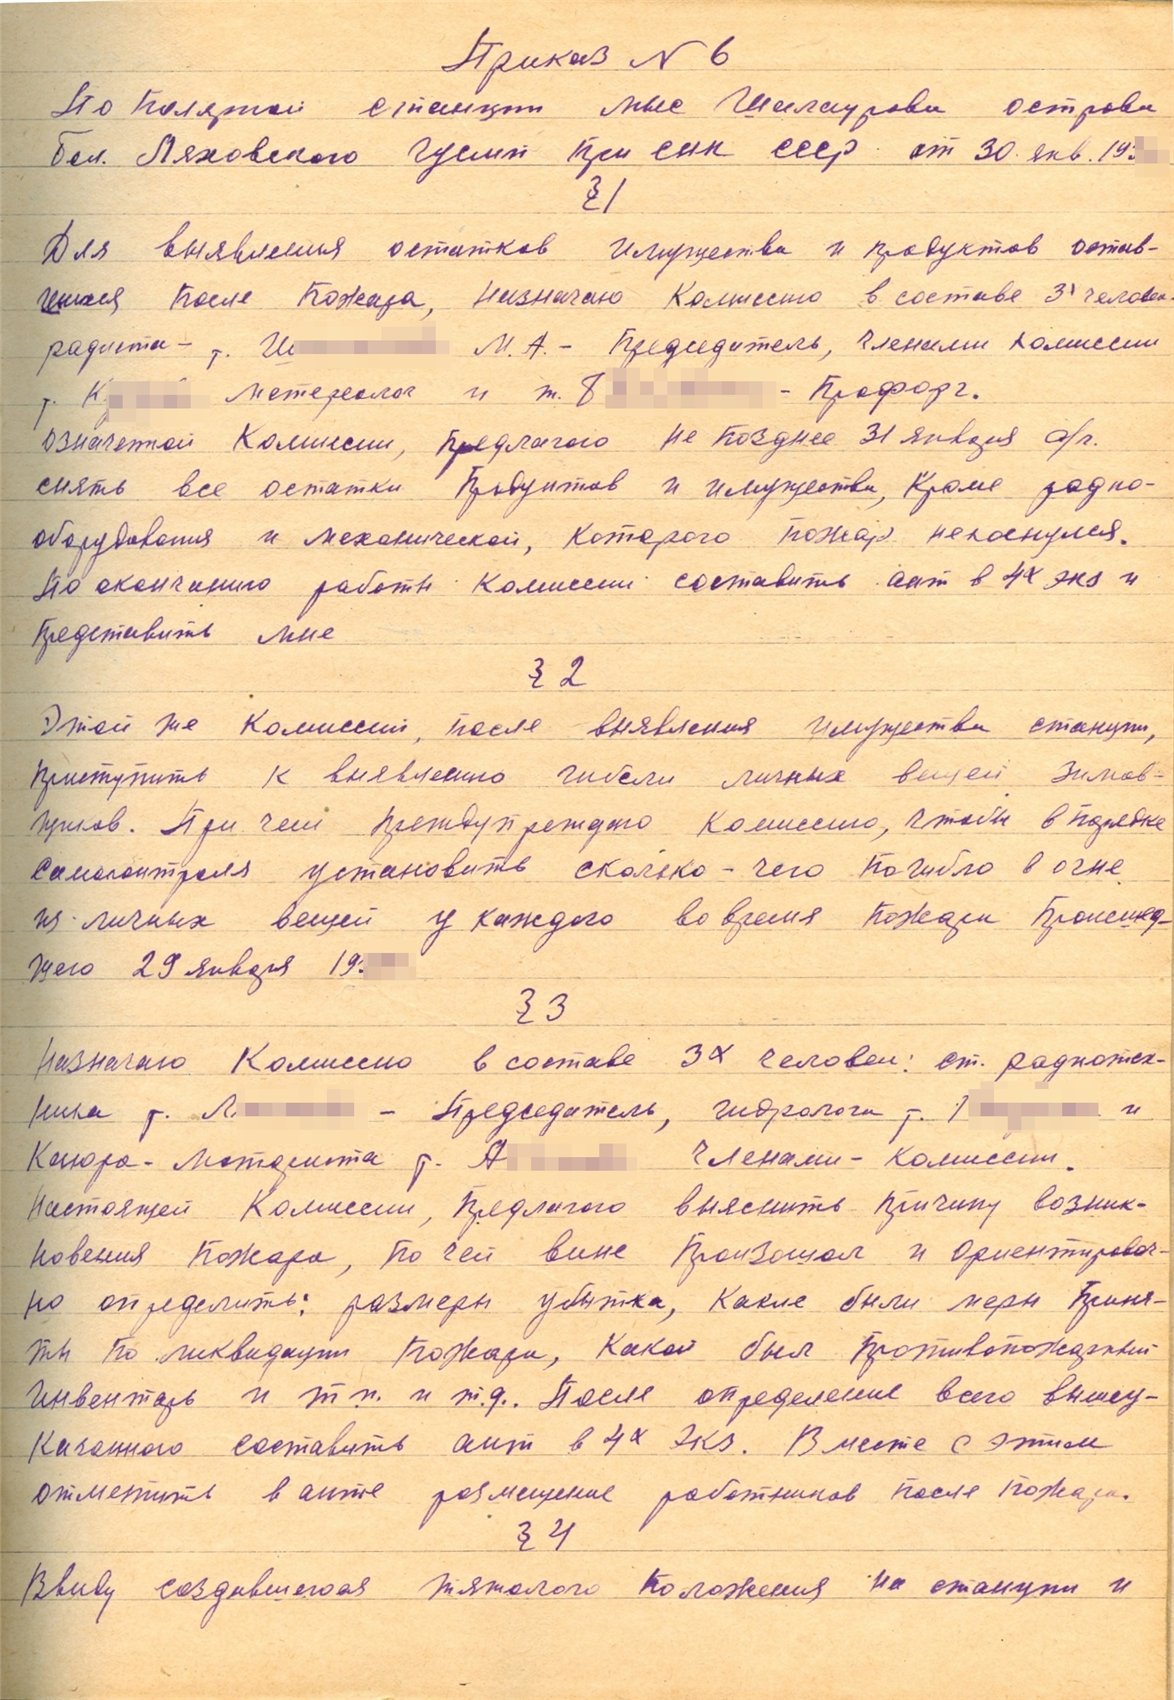 Приказ N 6
По Полярной станции мыс Шалаурова острова
Бол. Ляховского ГУСМП При СНК СССР от 30 янв. 19
§ 1
Для выявления остатков имущества и продуктов остав-
шихся После Пожара, Назначаю Комиссию в составе 3х человек
радиста - т. М.А. - Председатель, Членами Комиссии
т. метеролог и т. - Профорг.
означенной Комиссии, Предлагаю не позднее 31 января с/г.
снять все остатки Продуктов и имущества, Кроме радио-
оборудования и механической, которого пожар некоснулся.
По окончанию работы Комиссии составить акт в 4х экз и
Представить мне
§ 2
Этой же Комиссии, после выявления имущества станции,
Приступить к выявлению гибели личных вещей зимов-
щиков. При чем Предупреждаю Комиссию, чтобы в порядке
самоконтроля установить сколько - чего погибло в огне
из личных вещей у каждого во время Пожара Происшед-
шего 29 января 19
§ 3
Назначаю Комиссию в составе 3х человек: ст. радиотех-
ника т. - Председатель, гидролога т. и
Каюра - моториста т. Членами - Комиссии.
Настоящей Комиссии, Предлагаю выяснить Причину возник-
новения Пожара, По чей вине Произошол и Ориентировоч-
но определить: размеры убытка, Какие были меры Приня-
ты По ликвидации Пожара, Какой был Противопожарный
Инвентарь и т п. и т.д.. После определение всего вышеу-
казанного составить акт в 4х экз. Вместе с этим
отметить в акте размещение работников после Пожара.
§ 4
Ввиду создавшегося тяжолого Положения на станции и